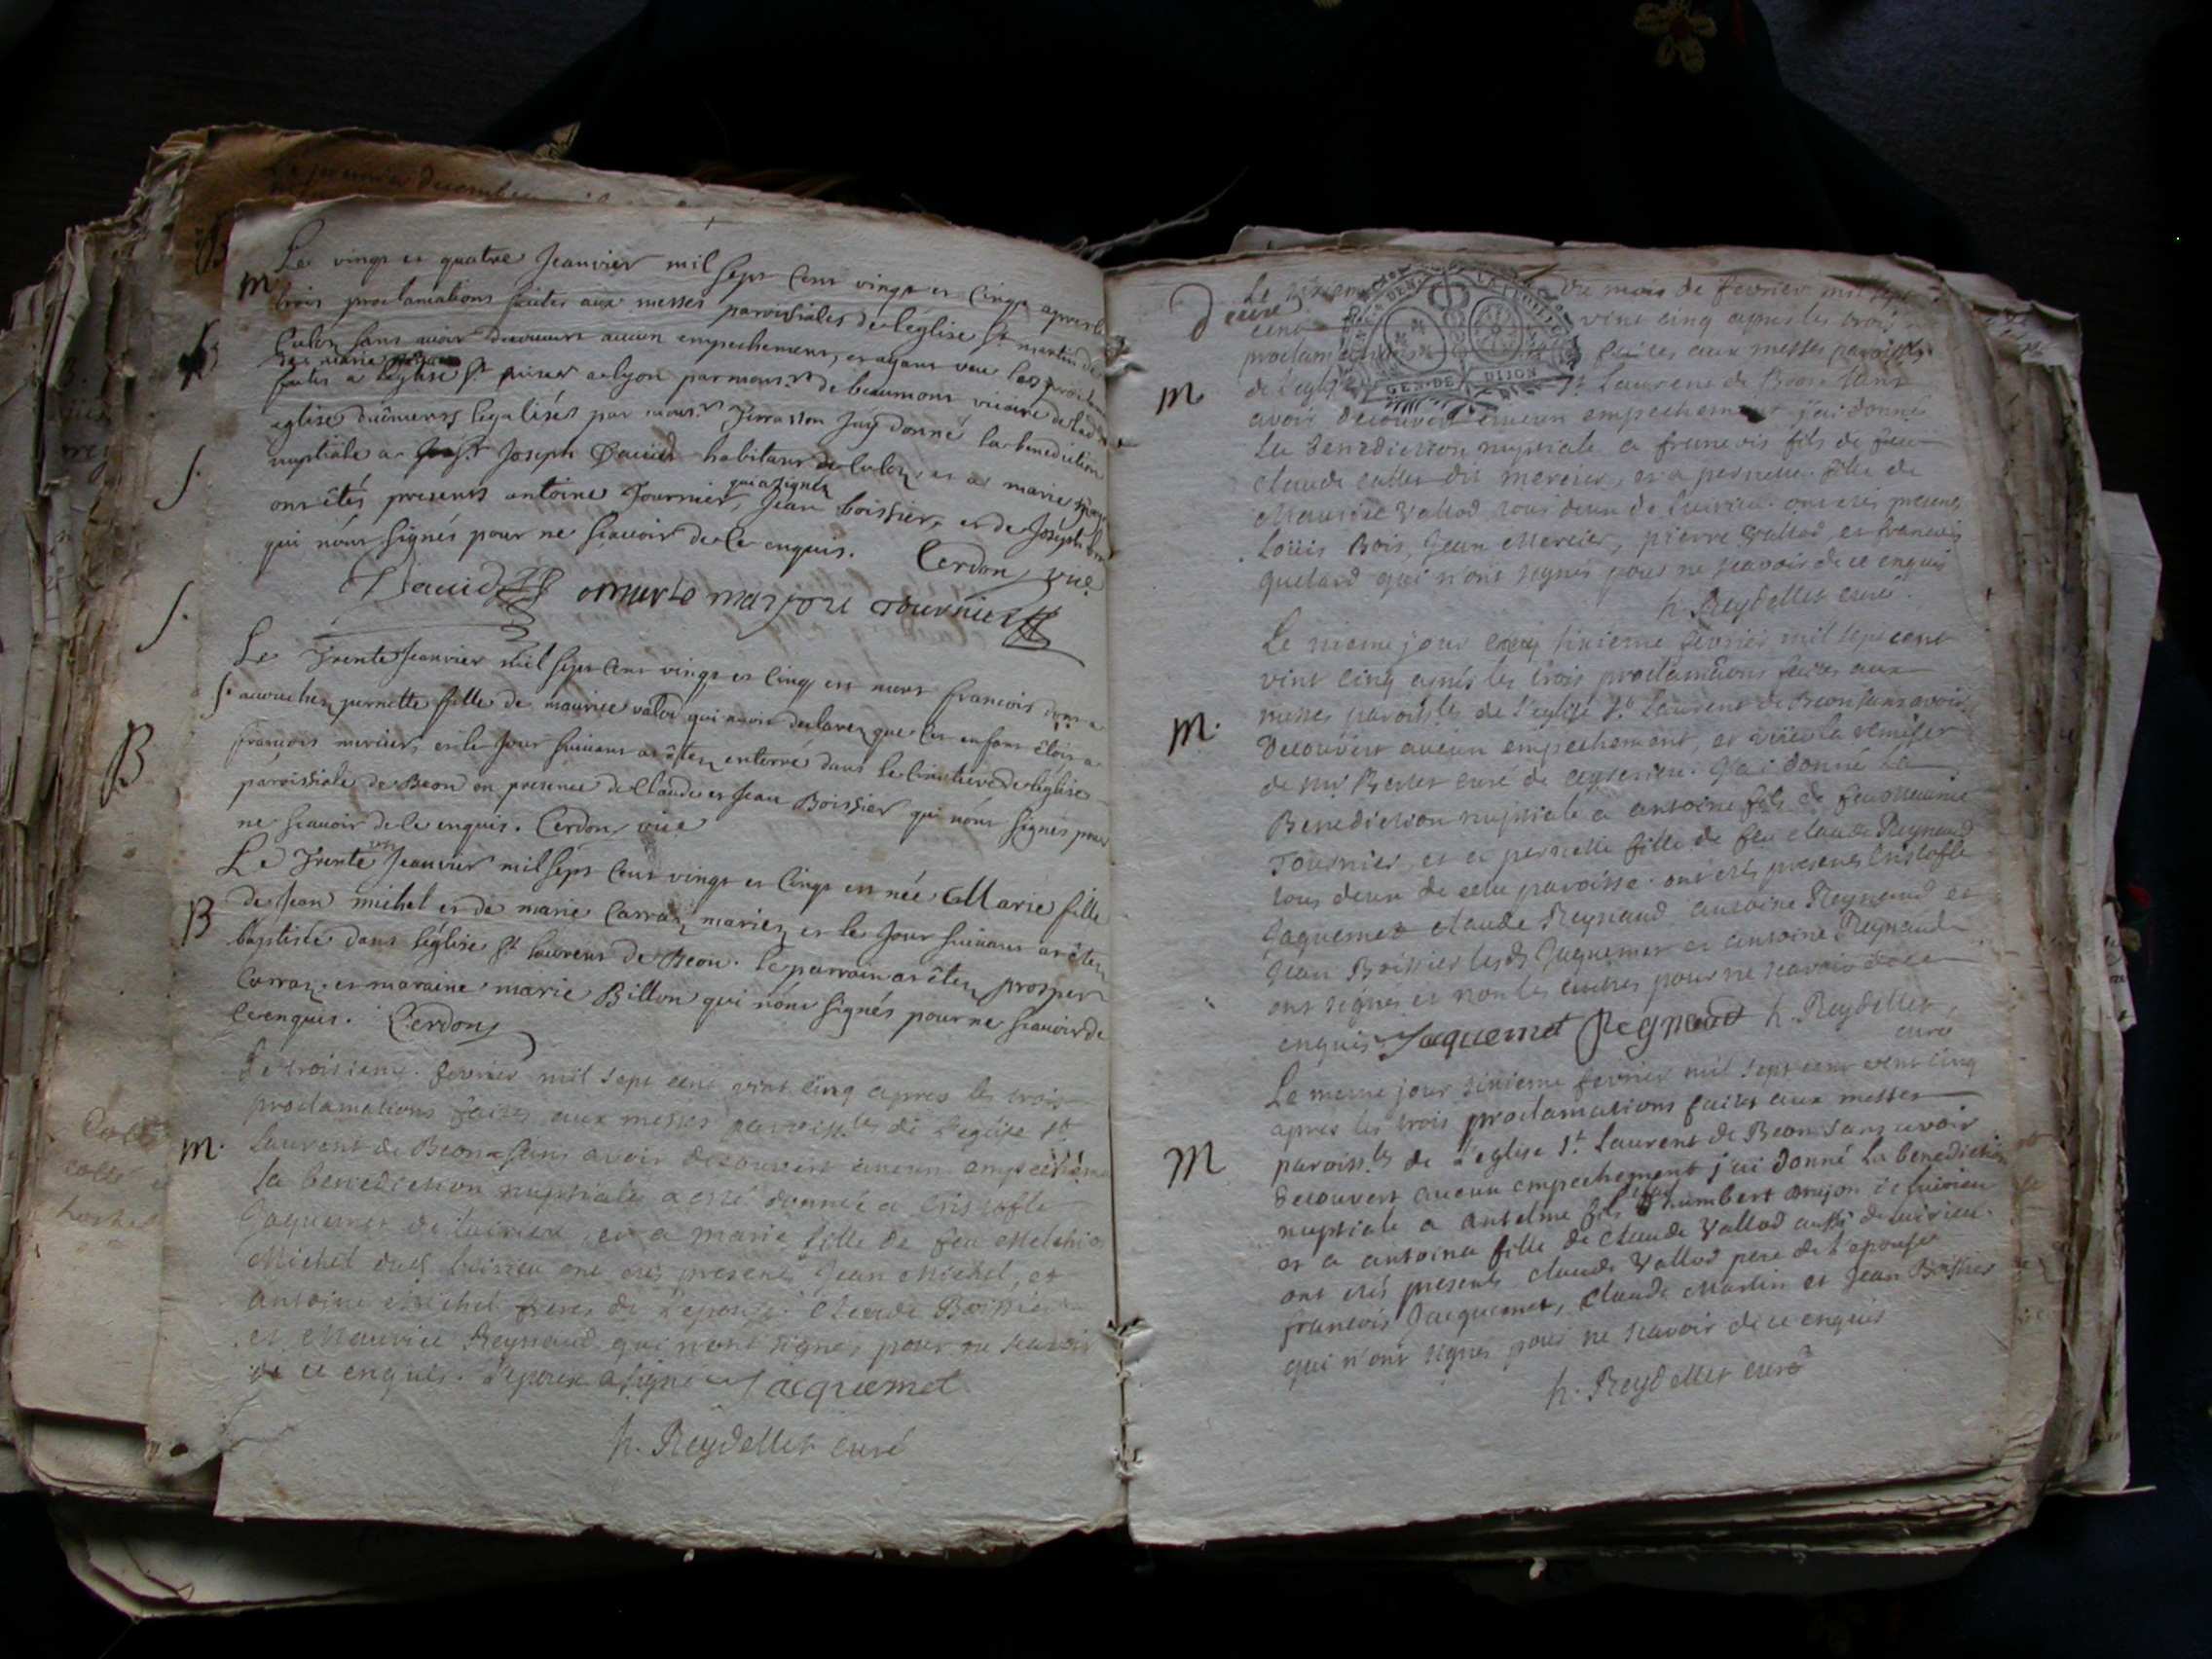 Le vingt et quatre Jeanvier mil sept Cent vingt et Cinq apres les
M
trois proclamations faites aux messes paroissiales de l'eglise St martin de
Culoz sans avoir decouvert aucun empechement, et ayant vue les
faites a l'eglise St a lyon par mons.r de beaumont vicaire de lad
eglise duement legalisés par mons.r Terrasson Jay donné la benediction
nuptiale a St Joseph David habitant de Culoz, et a marie
qui a signez
ont êtés presents antoine Tournier, Jean boissier, et de Joseph
qui n'ont signés pour ne scavoir de ce enquis. Cerdon vic
David Tournier
Le Trente Jeanvier mil sept Cent vingt et Cinq est mort francois
S. accouchez pernette fille de maurice valod qui avoit declarez que cet enfant êtoit a
francois mercier, et le Jour suivant a êtez enterré dans le Cimetiere de l'église
paroissiale de Beon en presence de Claude et Jean Boissier qui n'ont signés pour
ne scavoir de ce enquis. Cerdon vice
Le Trente Jeanvier mil sept Cent vingt et Cinq est née Marie fille
B
de Jean michel et de marie Carraz mariez et le Jour suivant a êtez
baptisée dans l'église St laurent de Beon. le parrain a êtez prosper
Carraz et maraine marie Billon qui n'ont signés pour ne scavoir de
ce enquis. Cerdon
Le troisieme fevrier mil sept cent vint cinq apres les trois
proclamations faites aux messes paroiss.les de l'eglise St
M.
Laurent de Beon sans avoir decouvert aucun empechement
la benediction nuptiale a esté donnée a Cristofle
Jaquemet de luirieu, et a marie fille de feu Melchior
Michel dud. luirieu ont etés presents Jean Michel, et
antoine Michel freres de l'epouse Claude Boissier
et Maurice Reynaud qui n'ont signes pour ne scavoir
de ce enquis. l'epoux a signe Jacquemet
h. Reydellet curé
Le mois de fevrier mil sept
cent vint cinq apres les trois
GEN. DE DIJON
proclamations faites aux messes paroiss.les
M
de l'eglise St Laurent de Beon sans
avoir decouvert aucun empechement j'ai donné
La benediction nuptiale a francois fils de feu
Claude dit mercier, et a pernette fille de
Maurice Vallod tous deux de luirieu. ont etés presents
Loüis Bois, Jean Mercier, pierre Vallod, et francois
quelard qui n'ont signes pour ne scavoir de ce enquis
h. Reydellet curé.
Le meme jour sixieme fevrier mil sept cent
vint cinq apres les trois proclamations faites aux
M.
messes paroiss.les de l'eglise St Laurent de Beon sans avoir
decouvert aucun empechement, et vüe la remise
de Mr curé de ceyzerieu. J'ai donné La
Benediction nuptiale a antoine fils de feu
Tournier, et a pernette fille de feu claude Reynaud
tous deux de cette paroisse. ont etés presents Cristofle
Jaquemet claude Reynaud antoine Reynaud et
Jean Boissier lesds Jaquemet et antoine Reynaud
ont signes et non les autres pour ne scavoir de ce
enquis Jaquemet Reynaud h. Reydellet
curé
Le meme jour sixieme fevrier mil sept cent vint cinq
apres les trois proclamations faites aux messes
M
paroiss.les de l'eglise St. Laurent de Beon sans avoir
decouvert aucun empechement j'ai donné la benediction
nuptiale a antelme fils humbert de luirieu
et a antoina fille de claude Vallod aussi de luirieu.
ont etés presents claude Vallod pere de l'epouse
francois Jacquemet, claude Martin et Jean Boissier
qui n'ont signes pour ne scavoir de ce enquis
h. Reydellet curé